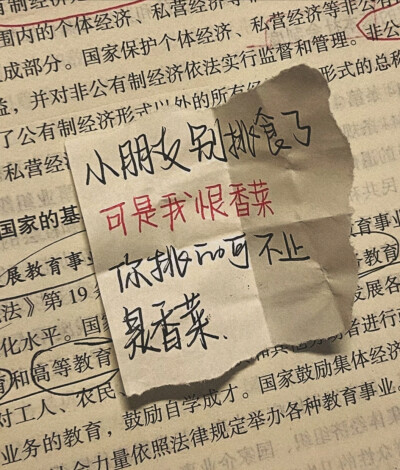 围内的个体经济、私营经济等非公有
成部分。国家保护个体经济、私营经济
益,并对非公有制经济依法实行监督和管理。非公
了公有制经济形式以外的所有
形式的总称
私营经济
小朋友别挑食了
可是我恨香菜
你挑的可不止
是香菜.
国家的基
展教育事业
教育
法》第19条
发展各
化水平。国家
和高等教育
对工人、农民、
国家鼓励集体经济
业务的教育,鼓励自学成才。
会力量依照法律规定举办各种教育事业。